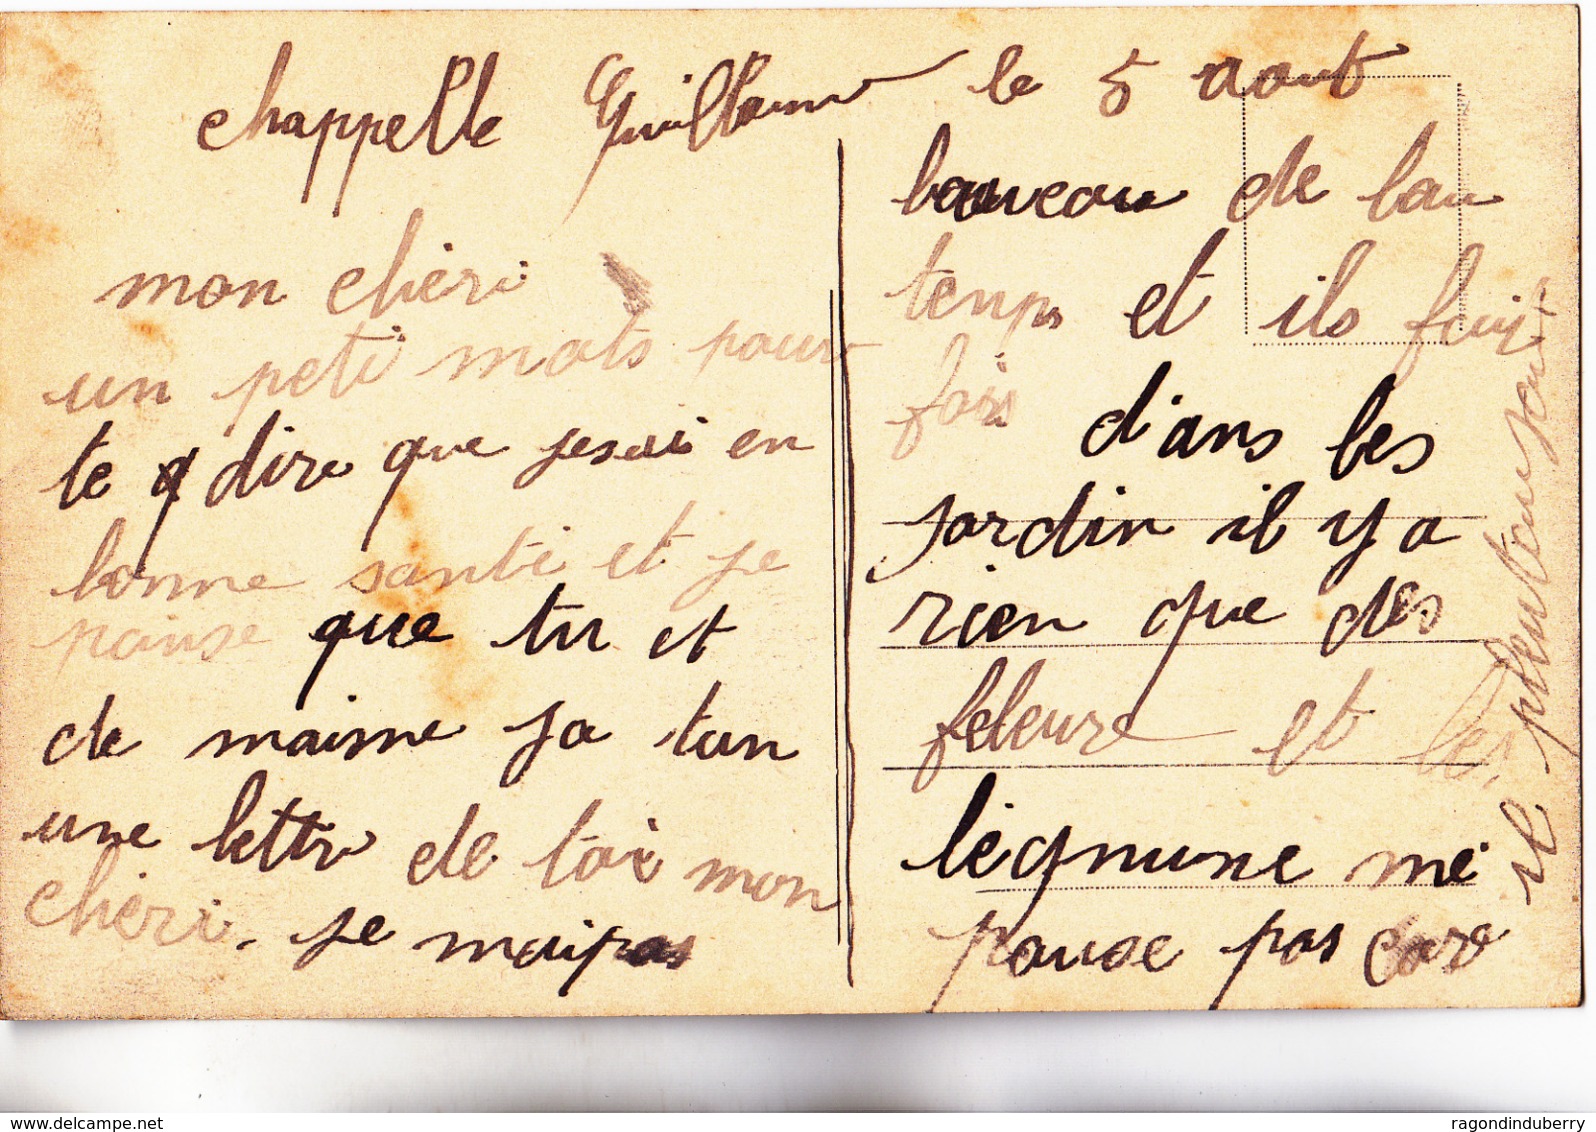 chappelle Guillaume le 5 aout
mon chéri
un peti mots pour
te dire que jesui en
bonne santé et je
panse que tu et
de maisme ja tan
une lettre de toi mon
chéri. je mui pas
bauveau de bau
temps et ils fui
fois d'ans les
jardin il y a
rien que des
feleure et les
légnume mé
pouse pas care
il pleu tou jour
www.delcampe.net
ragondinduberry